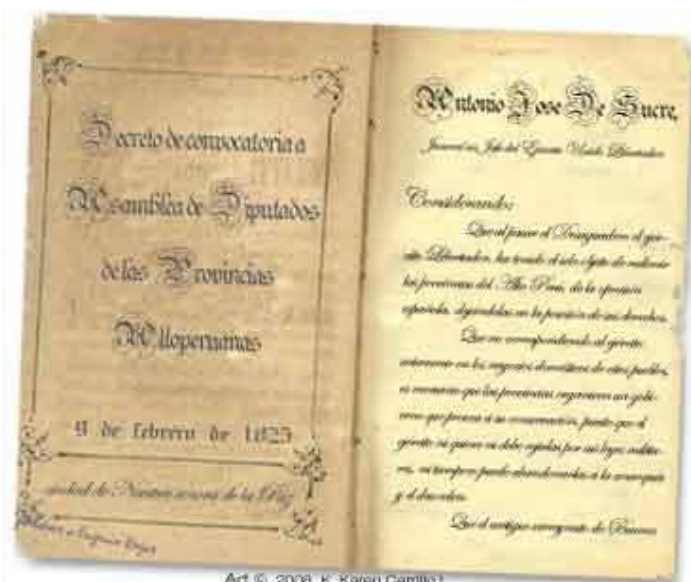 Decreto de convocatoria a
Asamblea de Diputados
de las Provincias
Altoperuanas
9 de febrero de 1825
ciudad de Nuestra señora de la Paz
Antonio Jose De Sucre,
General en Jefe del Ejercito Unido Libertador
Considerando:
Que al pasar el Desaguadero el ejer-
cito Libertador, ha tenido el solo objeto de redimir
las provincias del Alto Perú, de la opresión
española, dejándolas en la posesión de sus derechos.
Que no correspondiendo al ejército
intervenir en los negocios domésticos de estos pueblos,
es necesario que las provincias organicen un gobi-
erno que provea a su conservación, puesto que el
ejército ni quiere ni debe regirlas por sus leyes milita-
res, ni tampoco puede abandonarlas a la anarquía
y el desorden.
Que el antiguo virreynato de Buenos
Art © 2008, K. Karen Carrillo